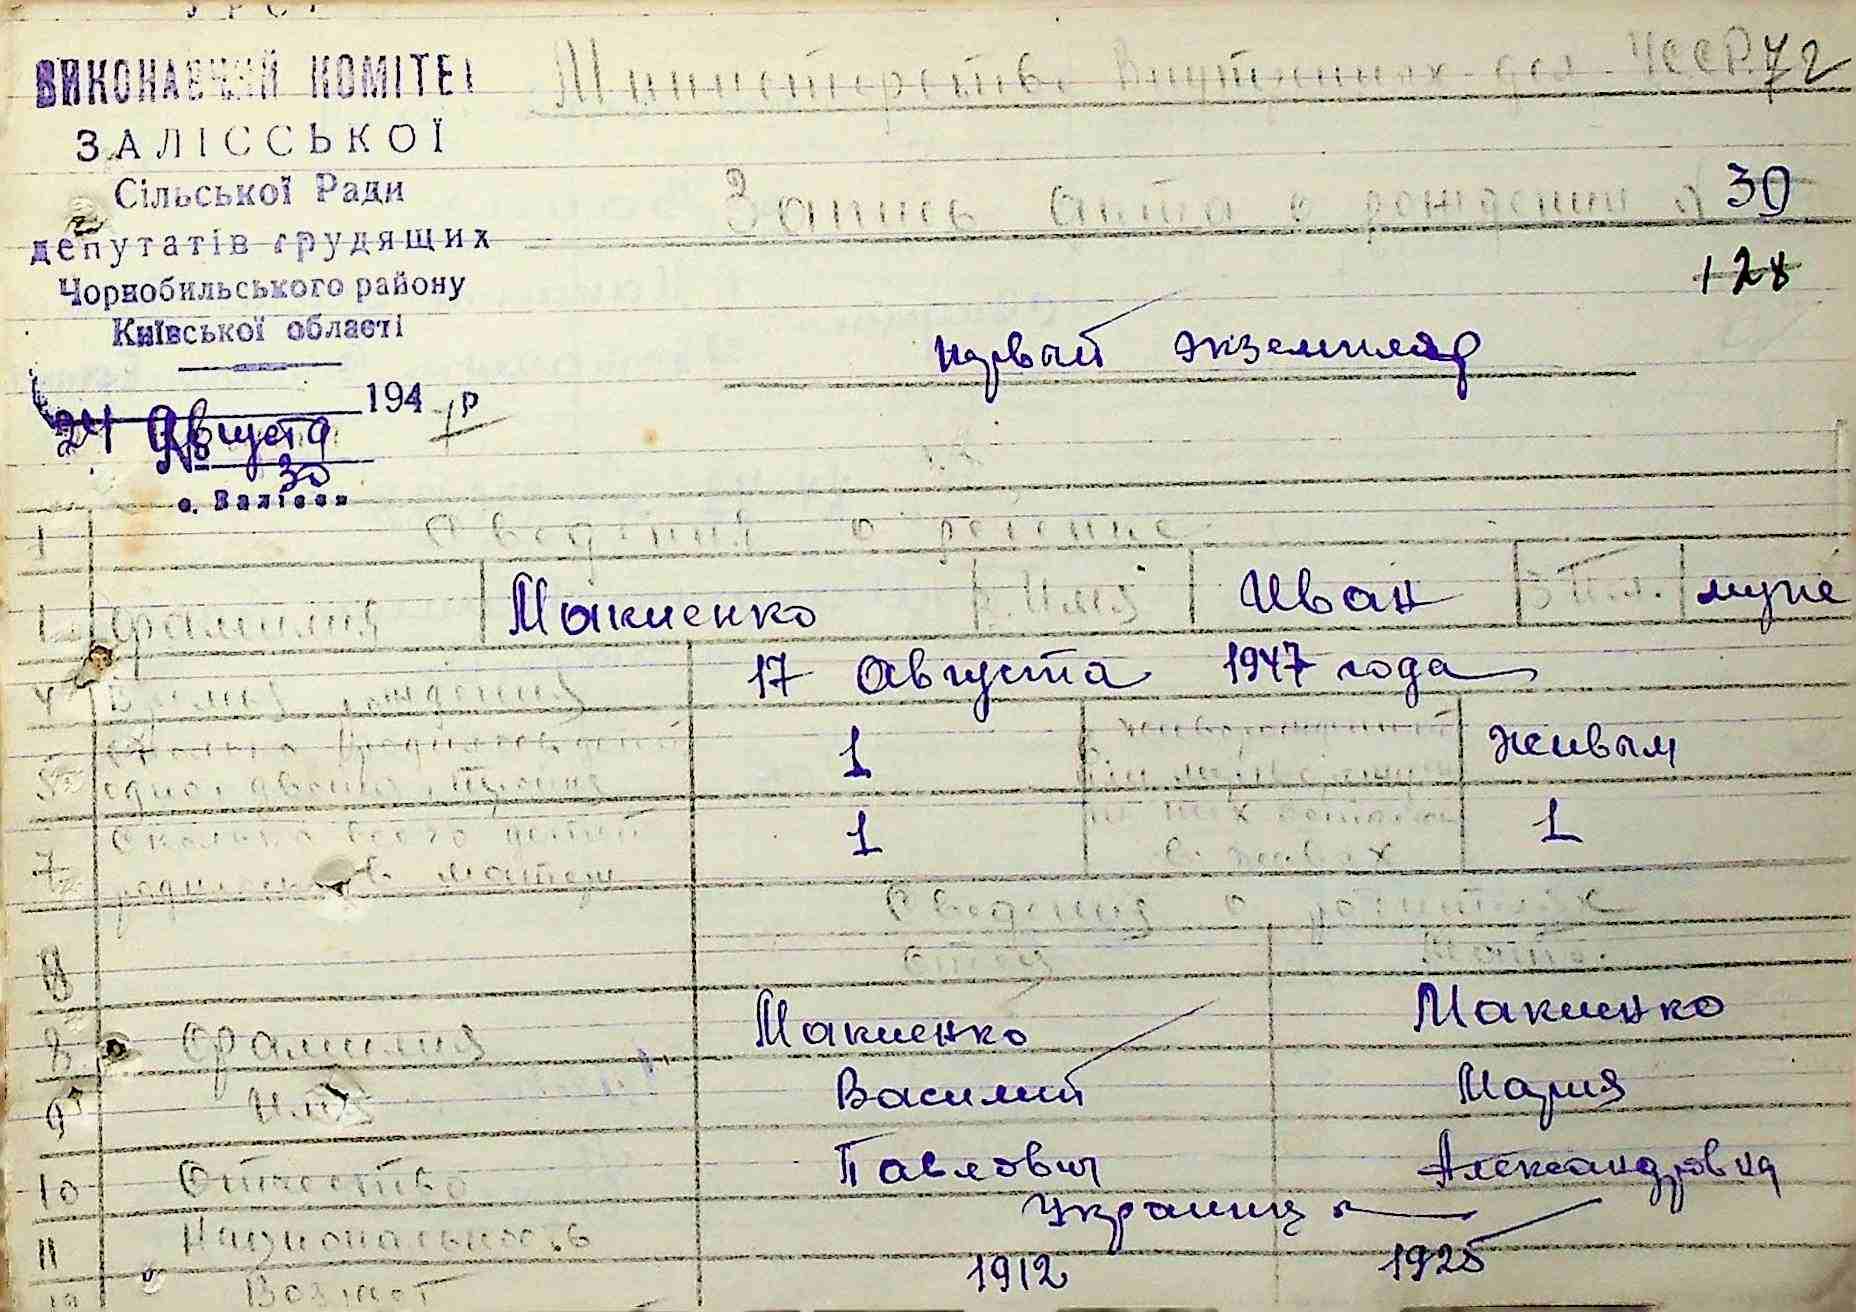 УРСР
ВИКОНАВЧИЙ КОМІТЕТ
ЗАЛІССЬКОЇ
Сільської Ради
депутатів трудящих
Чорнобильського району
Київської області
24 Августа 1947 р
№ 30
с. Залісся
Министерство Внутренних дел УССР. 72
Запись акта о рождении № 30
128
первый экземпляр
1 Сведения о ребенке
1. Фамилия Макиенко 2. Имя Иван 3 Пол. муже
4 Время рождения 17 Августа 1947 года
5 одно, двойня, тройня 1 живым
7 Сколько всего детей родилось у матери 1 из них осталось в живых 1
Сведения о родителях
Отец Мать
8 Фамилия Макиенко Макиенко
9 Имя Василий Мария
10 Отчество Павлович Александровна
11 Национальность Украинц
Возраст 1912 1925